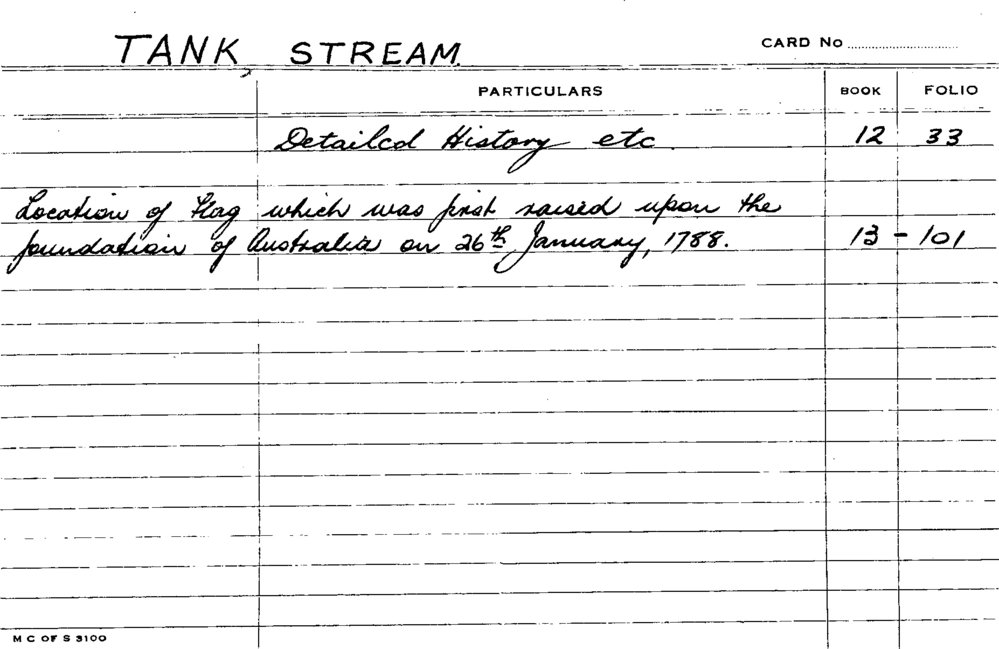 TANK STREAM.
CARD No
PARTICULARS BOOK FOLIO
Detailed History etc. 12 33
Location of Flag which was first raised upon the
foundation of Australia on 26th January, 1788. 13 - 101
M C OF S 3100